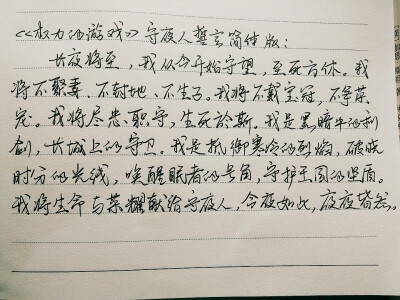 《权力的游戏》守夜人誓言简体版：
长夜将至，我从今开始守望，至死方休。我
将不娶妻、不封地、不生子。我将不戴宝冠，不争荣
宠。我将尽忠职守，生死於斯。我是黑暗中的利
剑，长城上的守卫。我是抵御寒冷的烈焰，破晓
时分的光线，唤醒眠者的号角，守护王国的坚盾。
我将生命与荣耀献给守夜人，今夜如此，夜夜皆然。